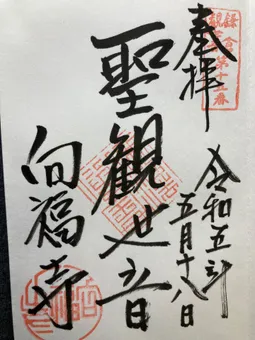 奉拝
鎌倉
観音
第十五番
聖観世音
向福寺
令和五年
五月十八日